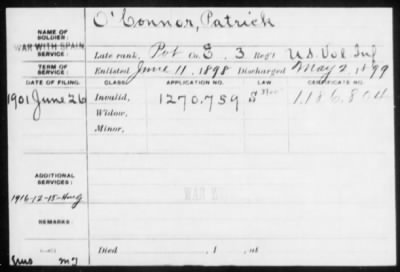 NAME OF SOLDIER: O'Connor, Patrick
WAR WITH SPAIN
SERVICE: Late rank, Pvt Co. E. 3 Reg't U.S. Vol Inf
TERM OF SERVICE: Enlisted June 11, 1898 Discharged May 2, 1899
DATE OF FILING. CLASS. APPLICATION NO. LAW CERTIFICATE NO.
1901 June 26 Invalid, 1270.759 1186.804
Widow,
Minor,
ADDITIONAL SERVICES:
1916-12-15
REMARKS:
Died , 1 , at